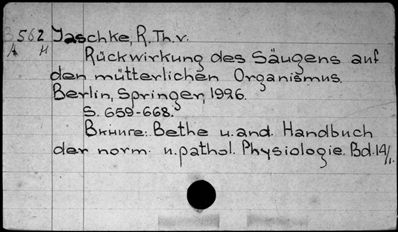 B 562 Jaschke, R.Th.v.
A H
Rückwirkung des Säugens auf
den mütterlichen Organismus.
Berlin, Springer, 1926.
S. 659-668.
В книге: Bethe u. and. Handbuch
der norm. u. pathol. Physiologie. Bd. 14/1.